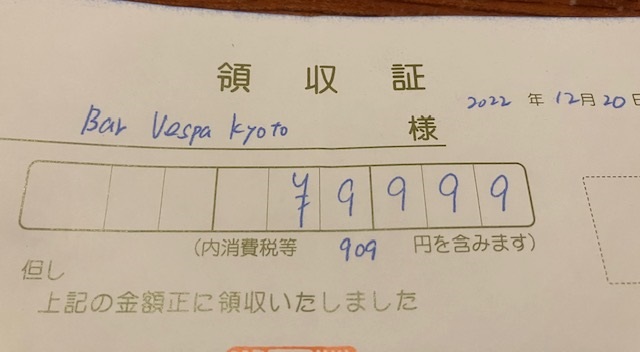 領収証
2022年12月20日
Bar Vespa Kyoto 様
¥9999
(内消費税等 909 円を含みます)
但し
上記の金額正に領収いたしました